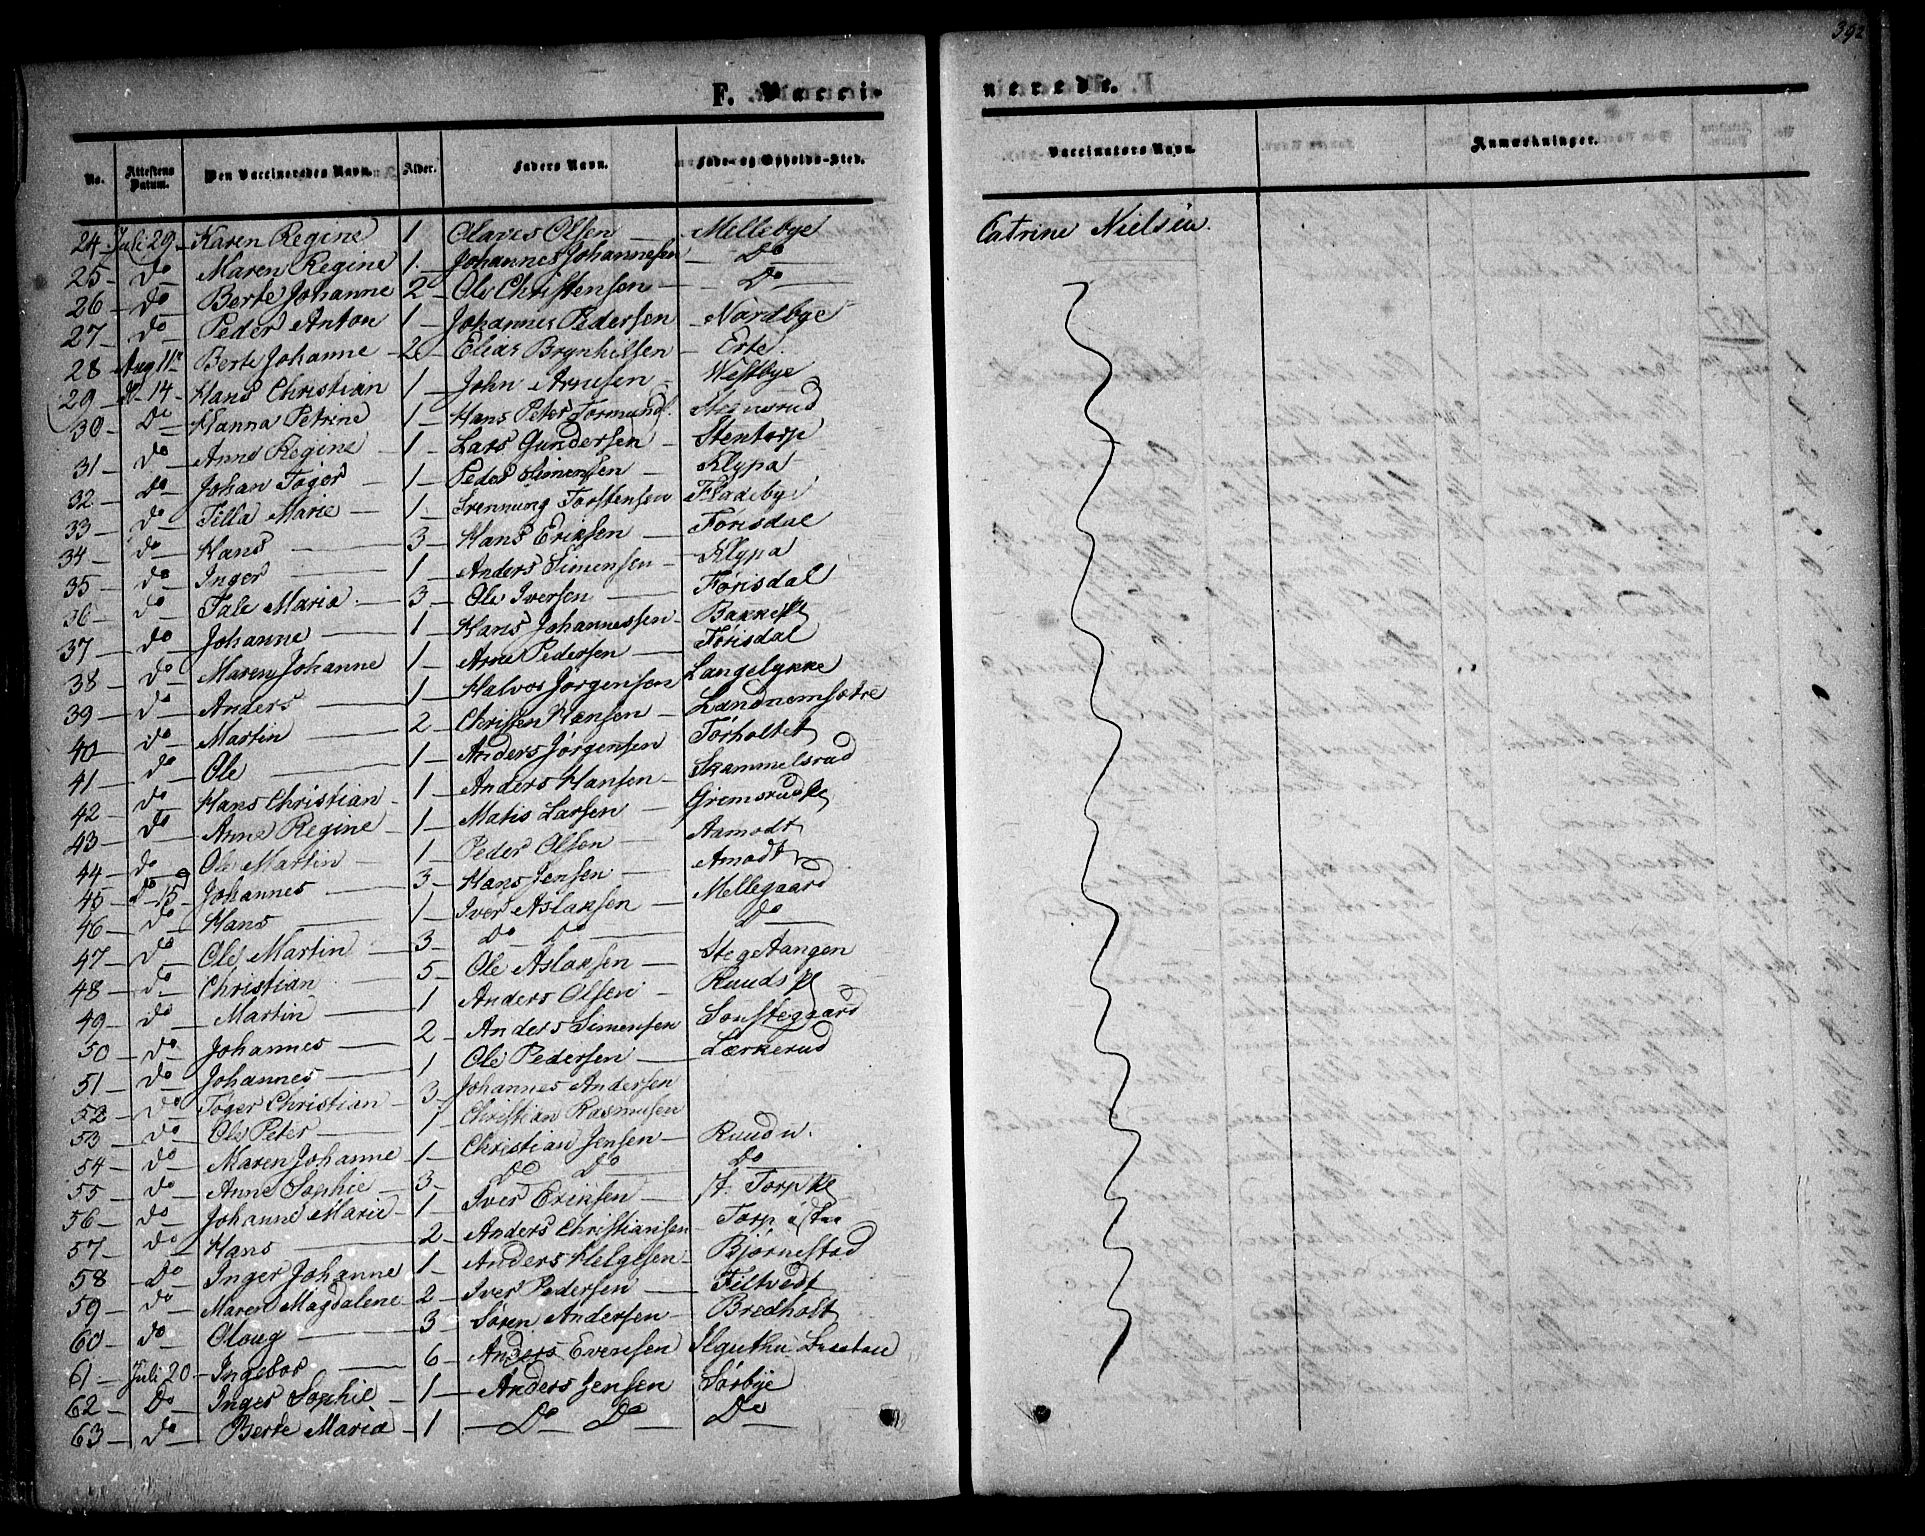 392
F. Vacci-
nerede.
No. Attestens Datum. Den Vaccineredes Navn. Alder. Faders Navn. Føde- og Opholds-Sted. Vaccinators Navn. Anmærkninger.
24 Juli 29 Karen Regine 1 Olaves Olsen Millebye Catrine Nielsen.
25 do Maren Regine 1 Johannes Johannesen Do
26 do Berte Johanne 2 Ole Christensen Do
27 do Peder Anton 1 Johannes Pedersen Nordbye
28 Aug 11 Berte Johanne 2 Elias Brynhilsen Erte
29 D 14 Hans Christian 1 John Arnesen Westbye
30 Do Hanna Petrine 1 Hans Peter Tormunds.
31 do Anne Regine 1 Lars Gundersen Stentorp
32 do Johan Tøger 1 Peder Simensen Klypa
33 do Tilla Marie 1 Torstensen Fladebye
34 do Hans 3 Hans Eriksen Torisdal
35 do Inger 1 Anders Simensen Klypa
36 do Tale Maria 3 Ole Iversen Torisdal
37 do Johanne 1 Hans Johannessen
38 do Maren Johanne 1 Arne Pedersen Torisdal
39 do Anders 1 Halvor Jørgensen Langelykke
40 do Martin 2 Christen Hansen Landnemsætre
41 do Ole 1 Anders Jørgensen Torholtet
42 do Hans Christian 1 Anders Hansen Skammelsrud
43 do Anne Regine 1 Matis Larsen
44 do Ole Martin 1 Peder Olsen Aamodt
45 D 15 Johannes 3 Hans Jensen Amodt
46 do Hans 1 Iver Aslaksen Mellegaard
47 do Ole Martin 3 Do Do Do
48 do Christian 5 Ole Aslaksen Stegetangen
49 do Martin 1 Anders Olsen
50 do Johannes 2 Anders Simensen
51 do Johannes 1 Ole Pedersen Lærkerud
52 do Tøger Christian 3 Johannes Andersen
53 do Ole Peter 1 Christian Rasmusen
54 do Maren Johanne 1 Christian Jensen
55 do Anne Sophie 3 Do Do Do
56 do Johanne Marie 1 Iver Eriksen
57 do Hans 2 Anders Christiansen Torp
58 Do Inger Johanne 1 Anders Helgesen Bjørnestad
59 do Maren Magdalene 2 Iver Pedersen Filtvedt
60 do Oloug 3 Søren Andersen Bredholt
61 Juli 20 Ingebor 6 Anders Evensen
62 Do Inger Sophie 1 Anders Jensen Sørbye
63 do Berte Maria 1 Do Do Do